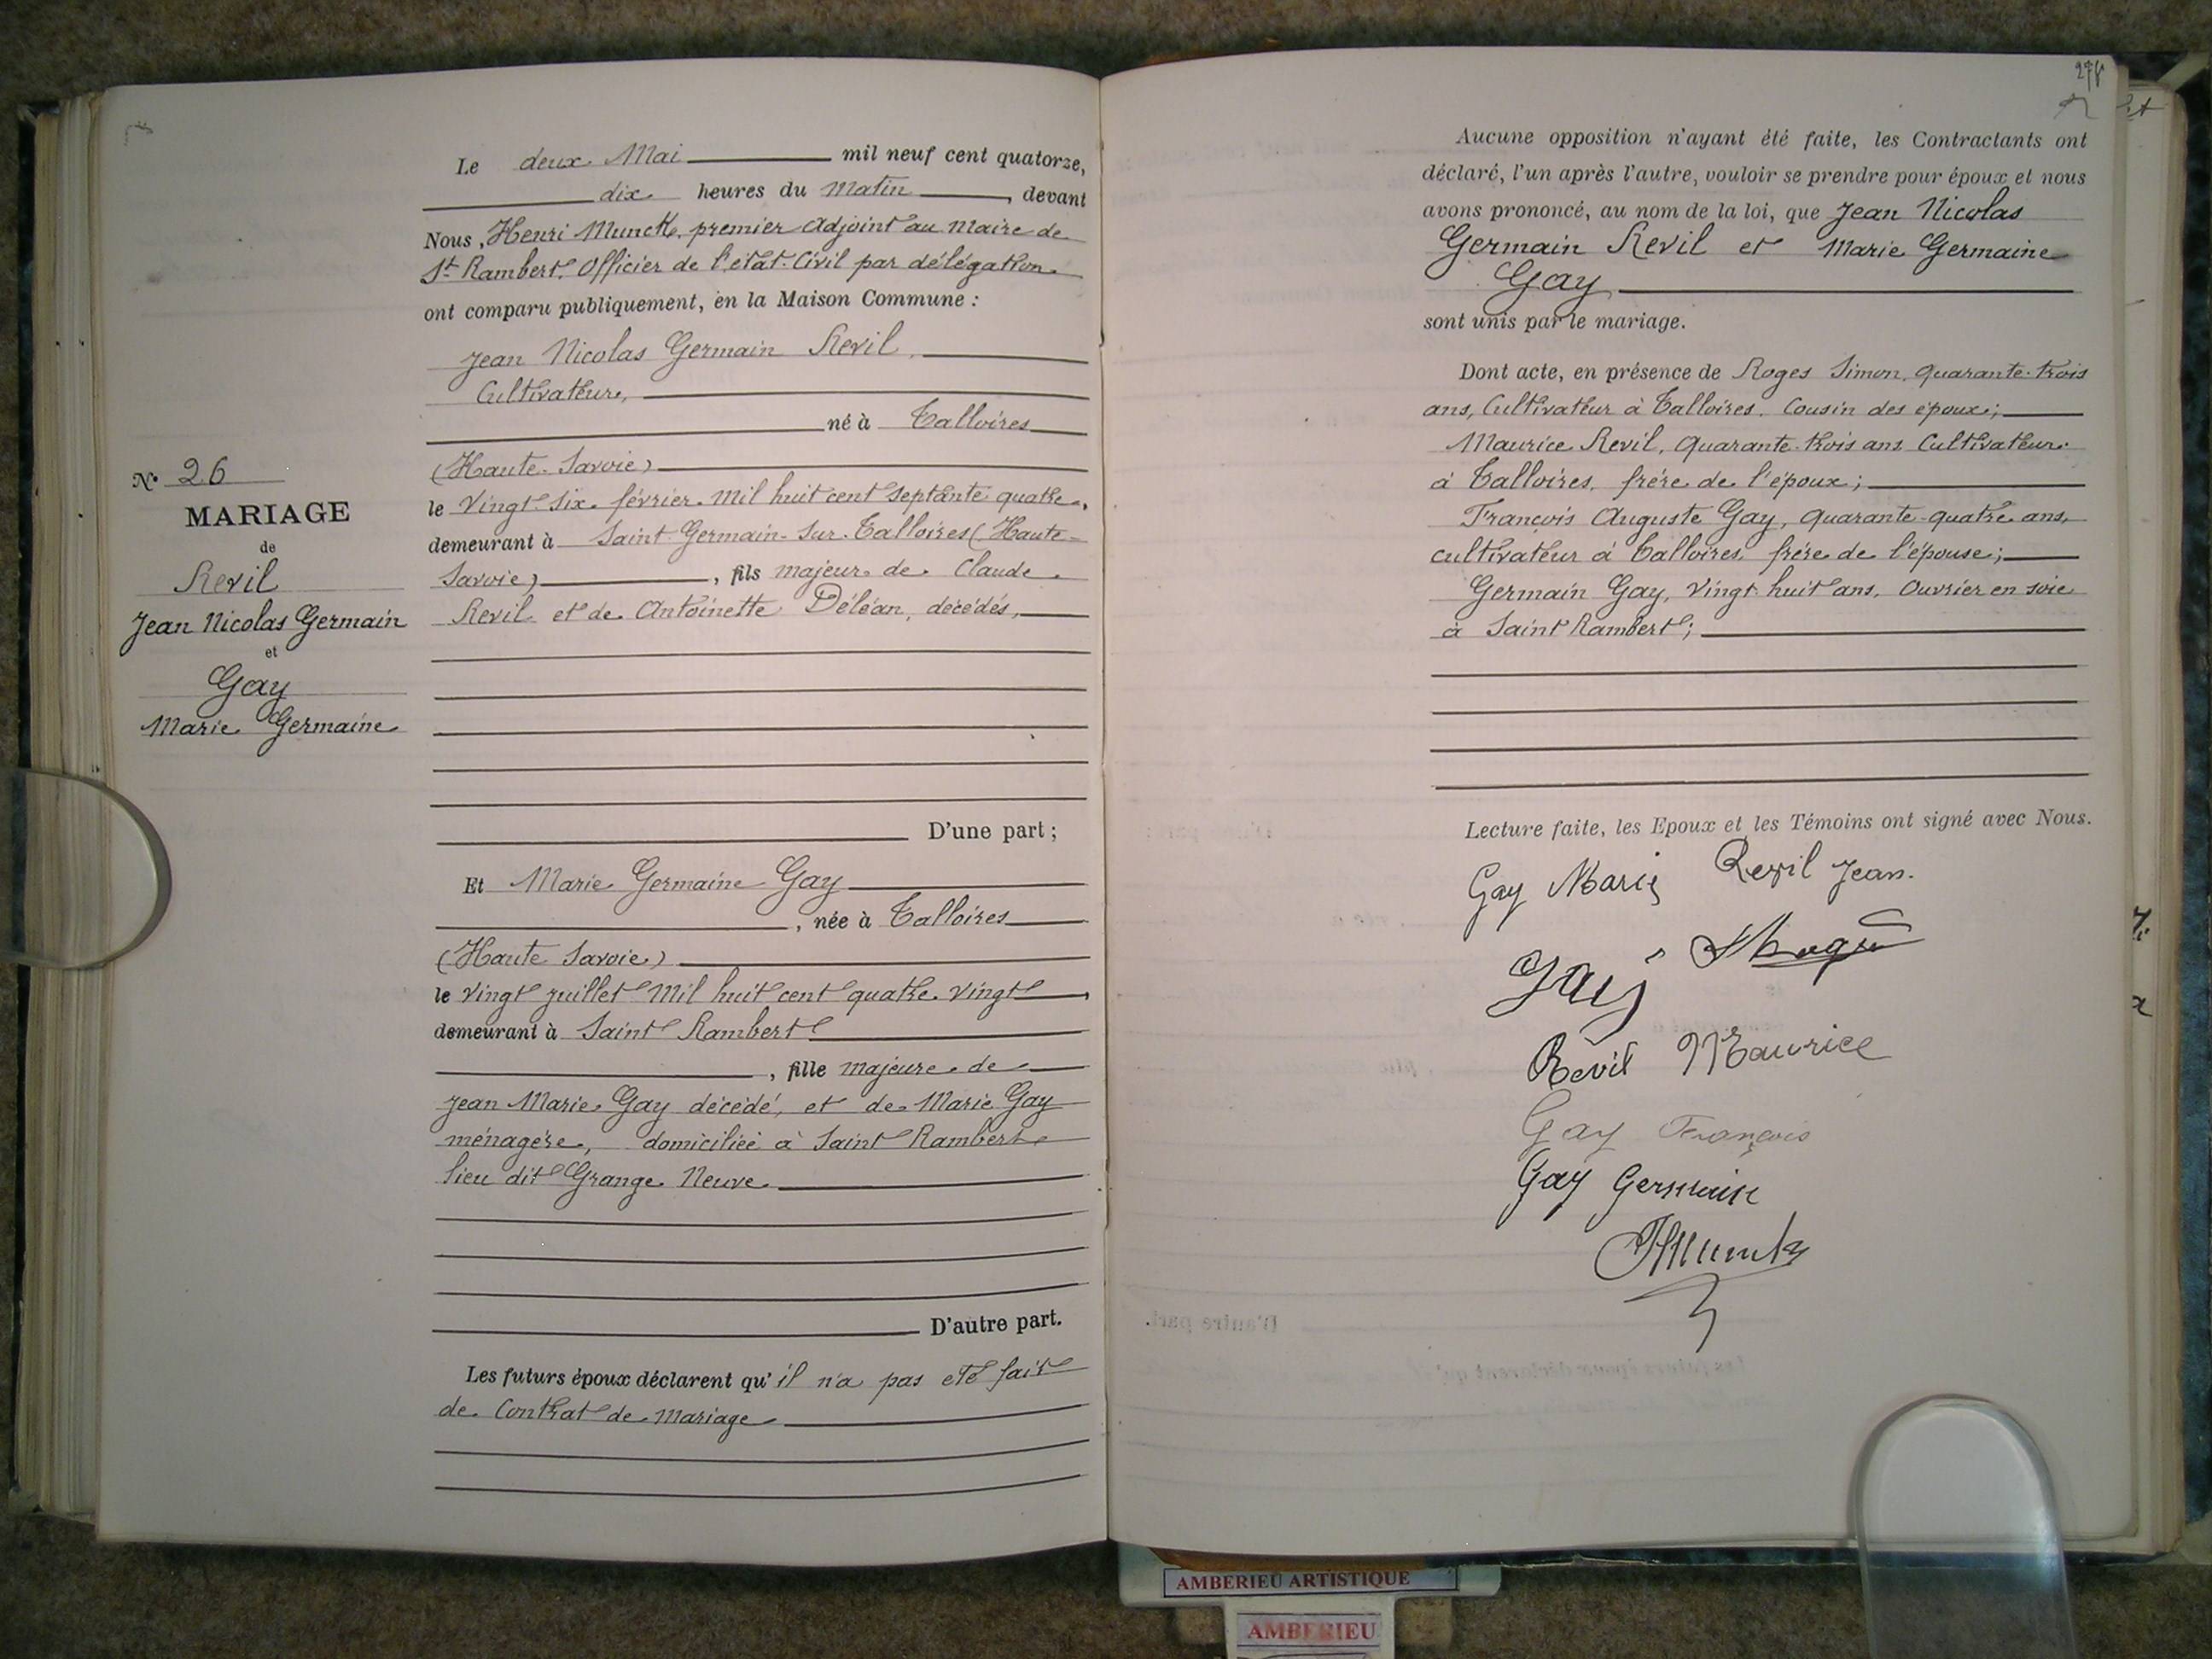 Le deux Mai mil neuf cent quatorze,
dix heures du Matin, devant
Nous, Henri Munck, premier Adjoint au Maire de
St Rambert, Officier de l'état-Civil par délégation
ont comparu publiquement, en la Maison Commune :
Jean Nicolas Germain Revil,
Cultivateur,
né à Talloires
(Haute-Savoie)
le Vingt-six février Mil huit cent septante quatre,
demeurant à Saint-Germain-sur-Talloires (Haute-
Savoie), fils majeur de Claude
Revil et de Antoinette Déléan, décédés,
D'une part ;
Et Marie Germaine Gay
, née à Talloires
(Haute Savoie)
le Vingt juillet Mil huit cent quatre-vingt,
demeurant à Saint Rambert
, fille majeure de
Jean Marie Gay décédé, et de Marie Gay
ménagère, domiciliée à Saint Rambert
lieu dit Grange Neuve.
D'autre part.
Les futurs époux déclarent qu'il n'a pas été fait
de Contrat de Mariage
No 26
MARIAGE
de
Revil
Jean Nicolas Germain
et
Gay
Marie Germaine
278
Aucune opposition n'ayant été faite, les Contractants ont
déclaré, l'un après l'autre, vouloir se prendre pour époux et nous
avons prononcé, au nom de la loi, que Jean Nicolas
Germain Revil et Marie Germaine
Gay
sont unis par le mariage.
Dont acte, en présence de Roges Simon, quarante-trois
ans, Cultivateur à Talloires. Cousin des époux ;
Maurice Revil, Quarante-trois ans Cultivateur
à Talloires, frère de l'époux ;
François Auguste Gay, quarante-quatre ans,
cultivateur à Talloires, frère de l'épouse ;
Germain Gay, Vingt-huit ans, Ouvrier en soie
à Saint Rambert ;
Lecture faite, les Epoux et les Témoins ont signé avec Nous.
Gay Marie Revil Jean.
Gay
Revil Maurice
Gay François
Gay Germain
HMunck
AMBERIEU ARTISTIQUE
AMBERIEU